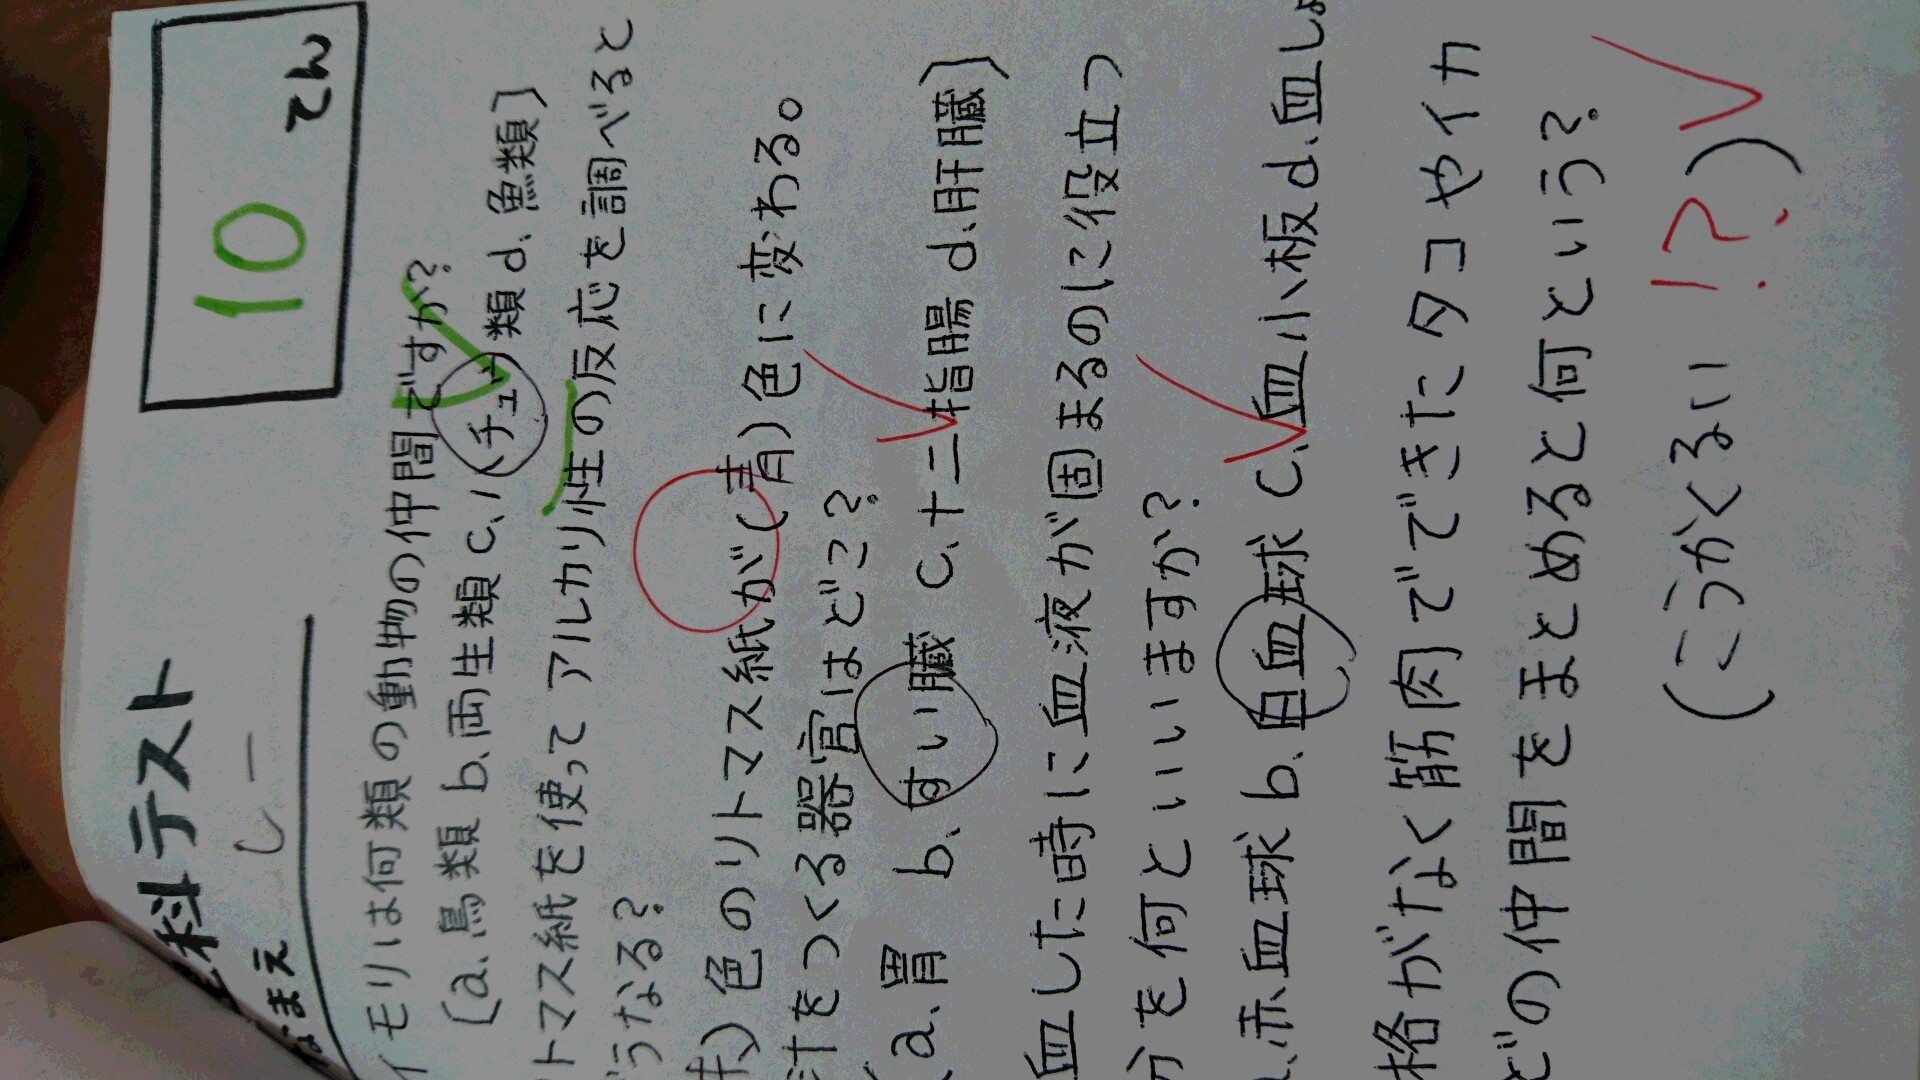 科テスト
なまえ
しー
10 てん
イモリは何類の動物の仲間ですか?
〔a、鳥類 b、両生類 c、ハチュウ類 d、魚類〕
トマス紙を使ってアルカリ性の反応を調べると
うなる?
赤)色のリトマス紙が(青)色に変わる。
汁をつくる器官はどこ?
(a、胃 b、すい臓 c、十二指腸 d、肝臓〕
血した時に血液が固まるのに役立つ
分を何といいますか?
、赤血球 b、白血球 c、血小板 d、血しょ
格がなく筋肉でできたタコやイカ
どの仲間をまとめると何という?
(こうがくるい!?)